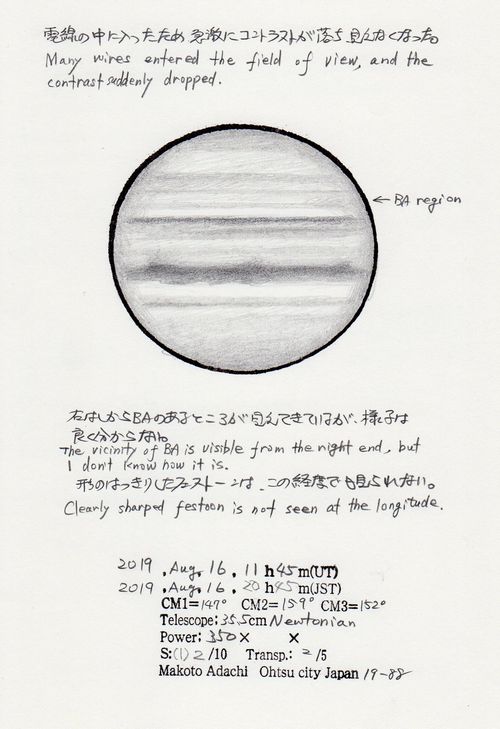 電線の中に入ったため急激にコントラストが落ち見えなくなった。
Many wires entered the field of view, and the
contrast suddenly dropped.
← BA region
右はしからBAのあるところが見えてきているが、様子は
良く分からない。
The vicinity of BA is visible from the right end, but
I don't know how it is.
形のはっきりしたフェストーンは、この経度でも見られない。
Clearly sharped festoon is not seen at the longitude.
2019 . Aug. 16 . 11 h 45 m(UT)
2019 . Aug. 16 . 20 h 45 m(JST)
CM1=147° CM2=159° CM3=152°
Telescope: 35.5cm Newtonian
Power: 350× ×
S:(1) 2/10 Transp.: 2/5
Makoto Adachi Ohtsu city Japan 19-88